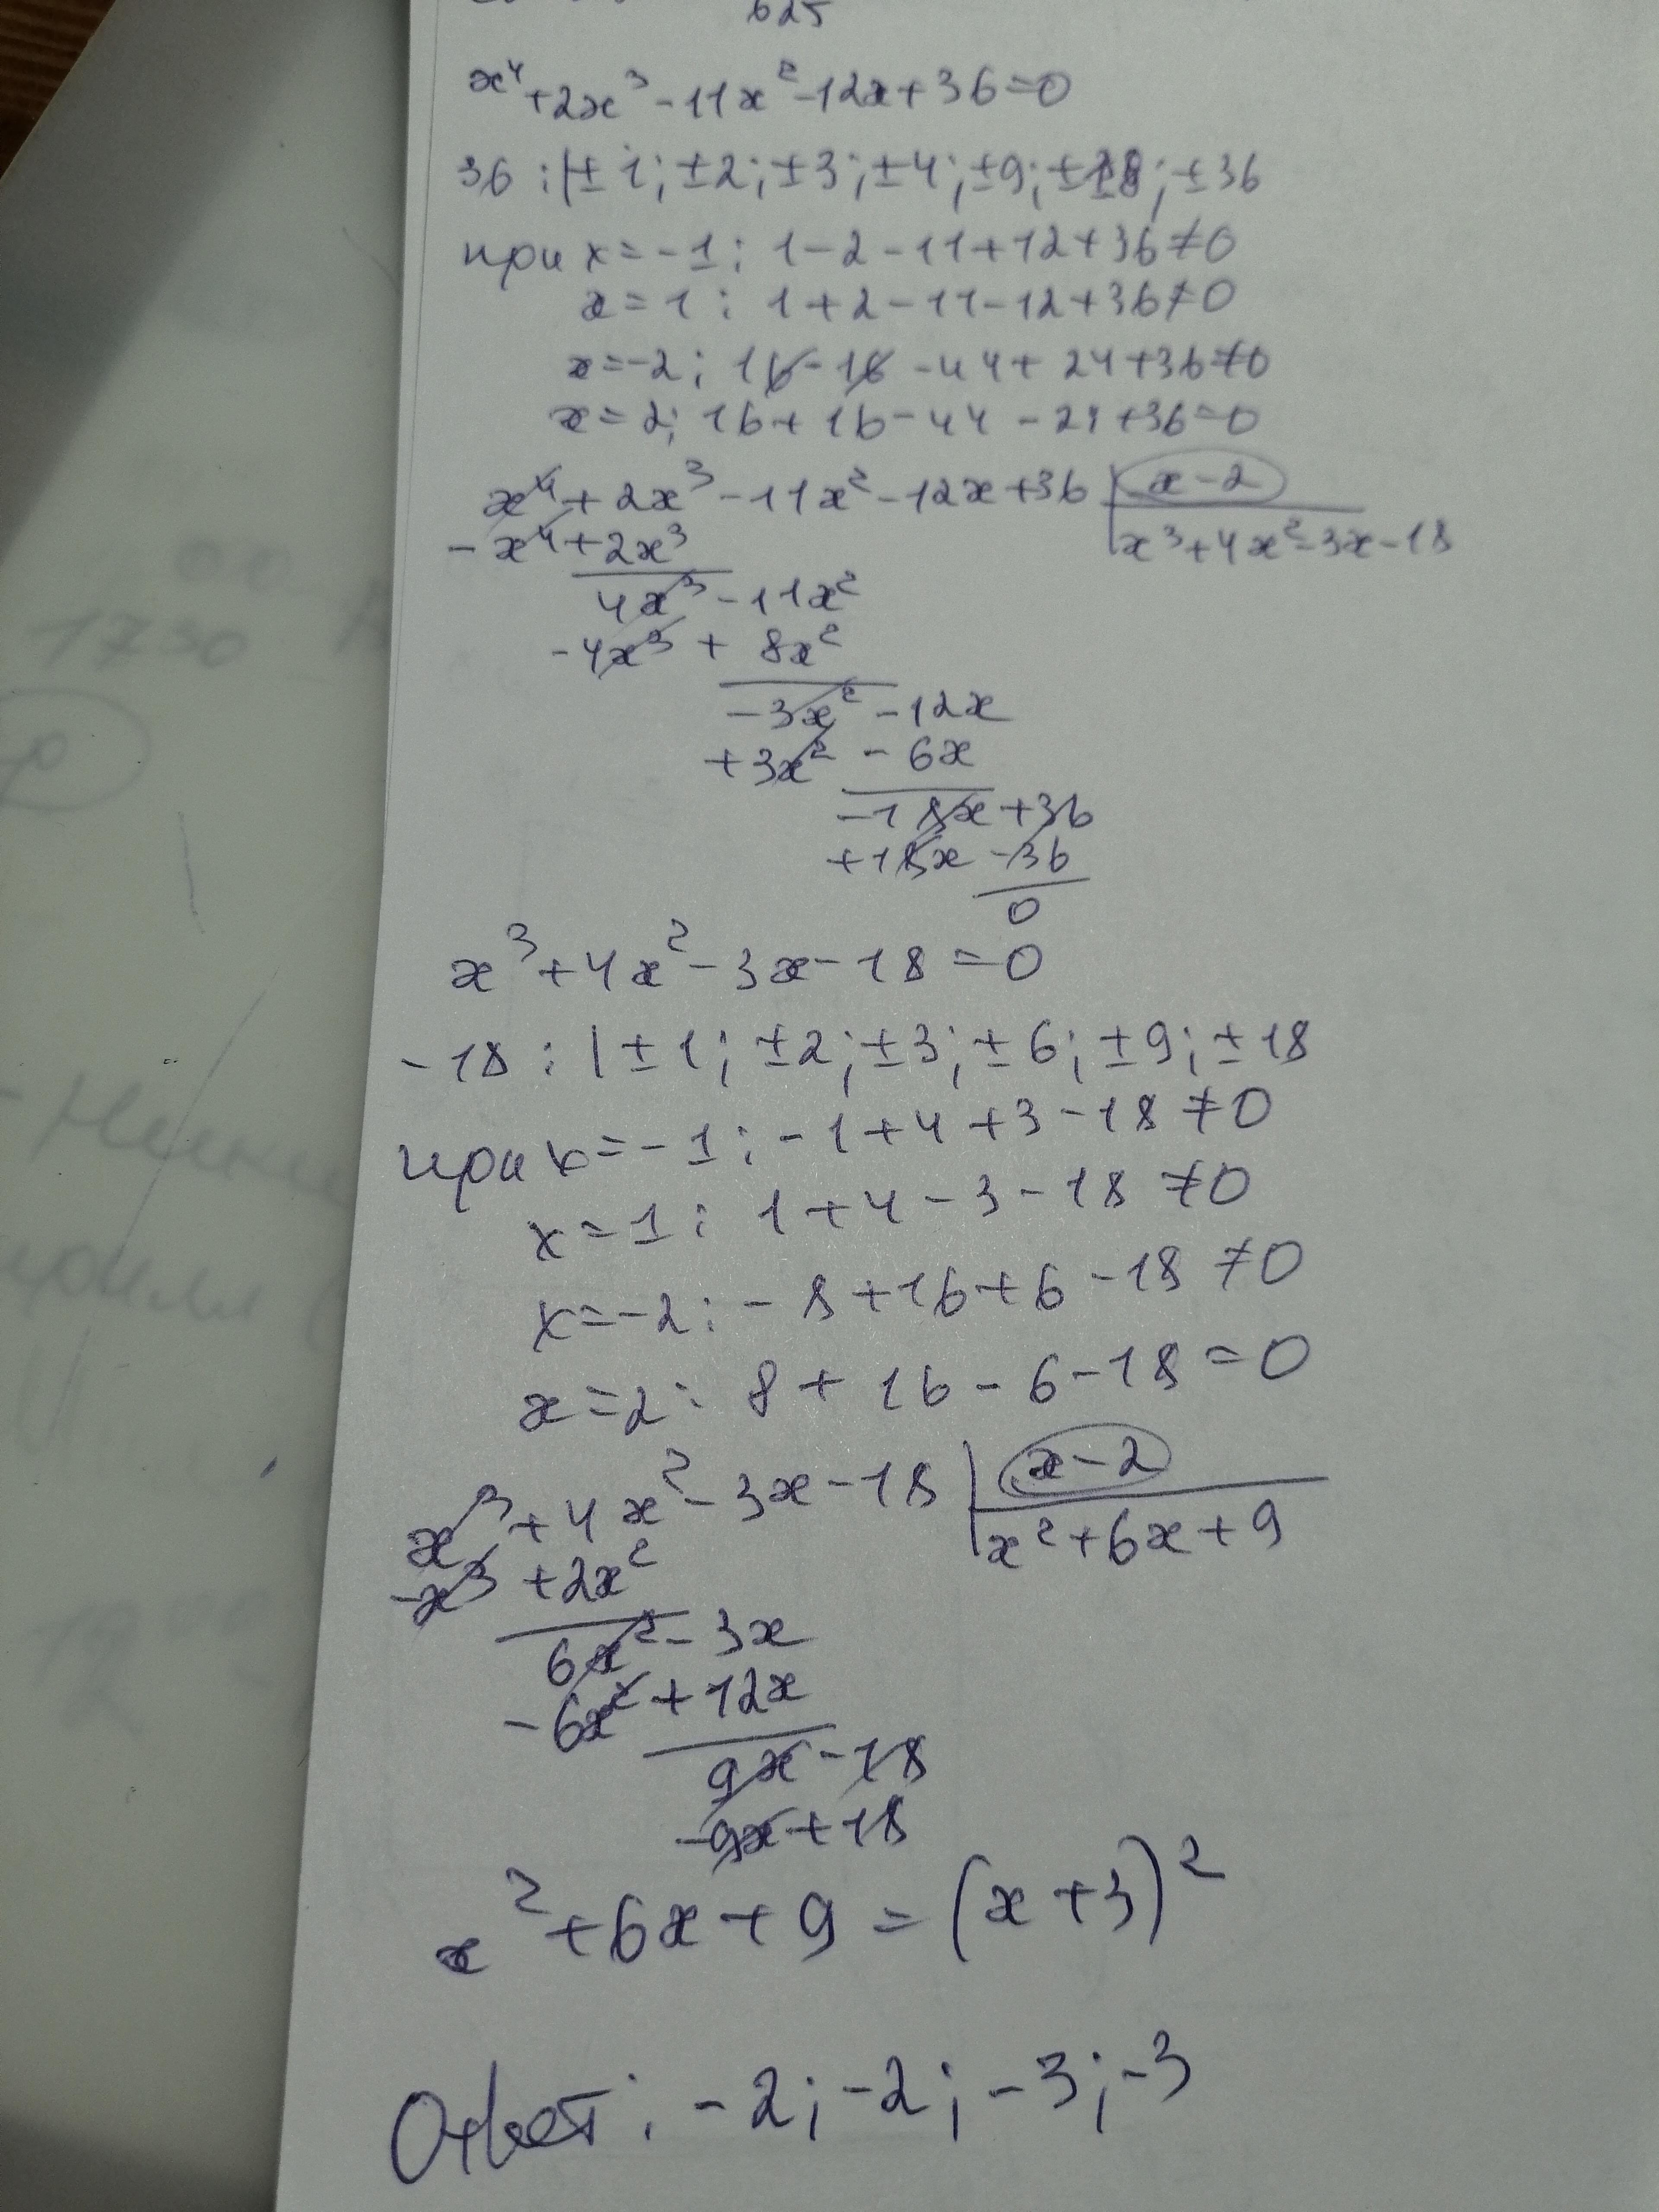 625
x⁴+2x³-11x²-12x+36=0
36:|±1;±2;±3;±4;±9;±18;±36
при x=-1: 1-2-11+12+36≠0
x=1: 1+2-11-12+36≠0
x=-2: 16-16-44+24+36≠0
x=2: 16+16-44-24+36=0
x⁴+2x³-11x²-12x+36 | x-2
-x⁴+2x³ | x³+4x²-3x-18
4x³-11x²
-4x³+8x²
-3x²-12x
+3x²-6x
-18x+36
+18x-36
0
x³+4x²-3x-18=0
-18:|±1;±2;±3;±6;±9;±18
при x=-1: -1+4+3-18≠0
x=1: 1+4-3-18≠0
x=-2: -8+16+6-18≠0
x=2: 8+16-6-18=0
x³+4x²-3x-18 | x-2
-x³+2x² | x²+6x+9
6x²-3x
-6x²+12x
9x-18
-9x+18
x²+6x+9=(x+3)²
Ответ: -2;-2;-3;-3
1730